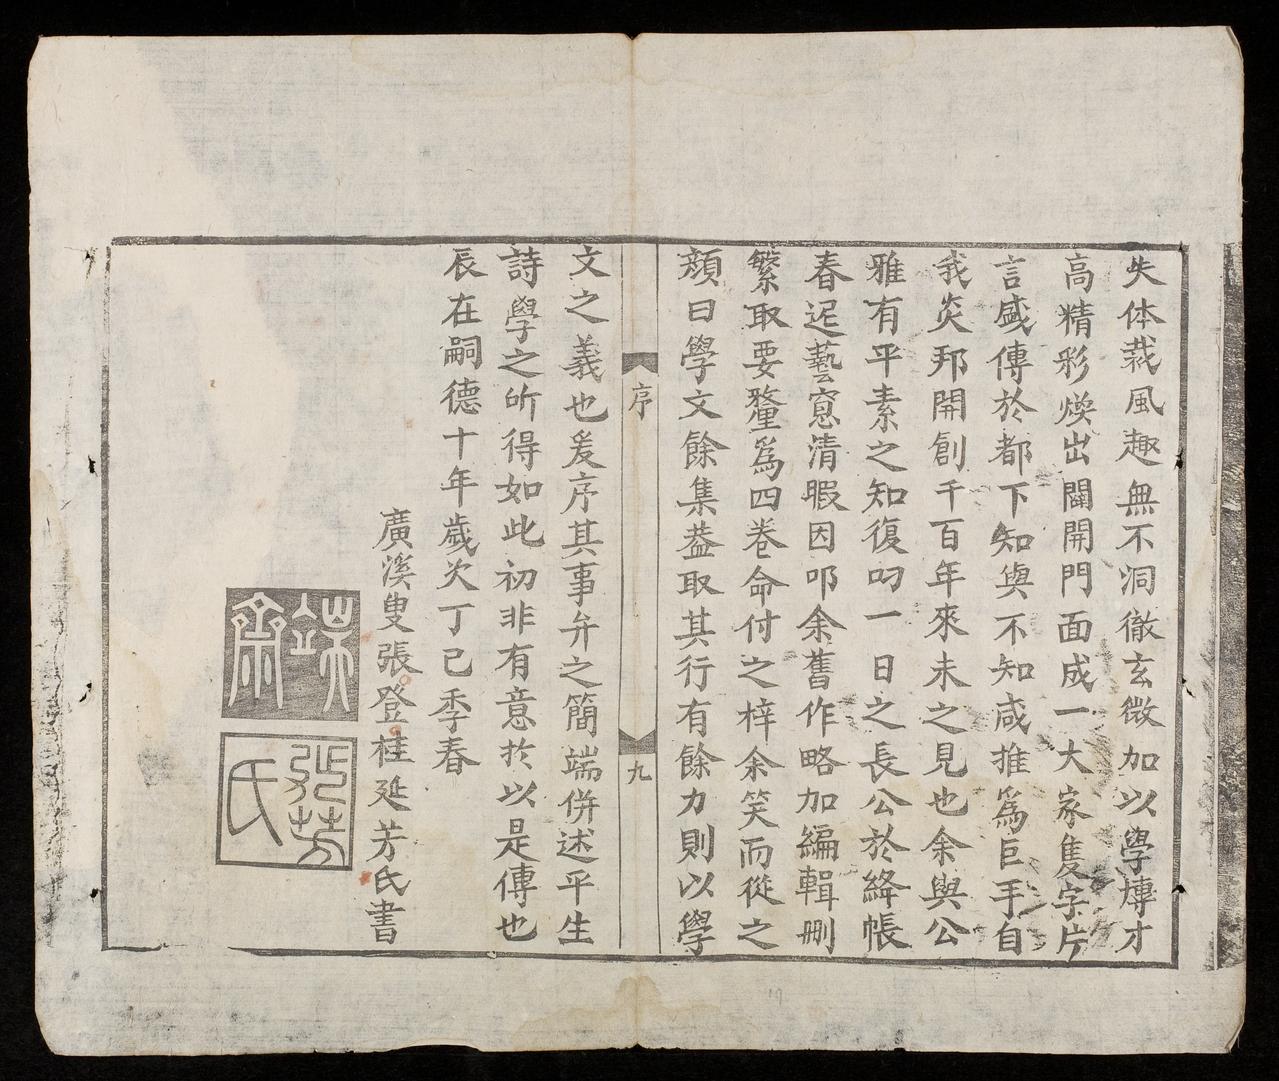 失体裁風趣無不洞徹玄微加以學博才
高精彩煥出闢開門面成一大家隻字片
言盛傳於都下知與不知咸推爲巨手自
我炎邦開創千百年來未之見也余與公
雅有平素之知復叨一日之長公於絳帳
春迟藝窓清暇因叩余舊作略加編輯刪
繁取要釐爲四卷命付之梓余笑而從之
顏曰學文餘集葢取其行有餘力則以學
序
九
文之義也爰序其事弁之簡端併述平生
詩學之所得如此初非有意於以是傳也
辰在嗣德十年歲次丁巳季春
廣溪叟張登桂延芳氏書
端齋
張芳氏